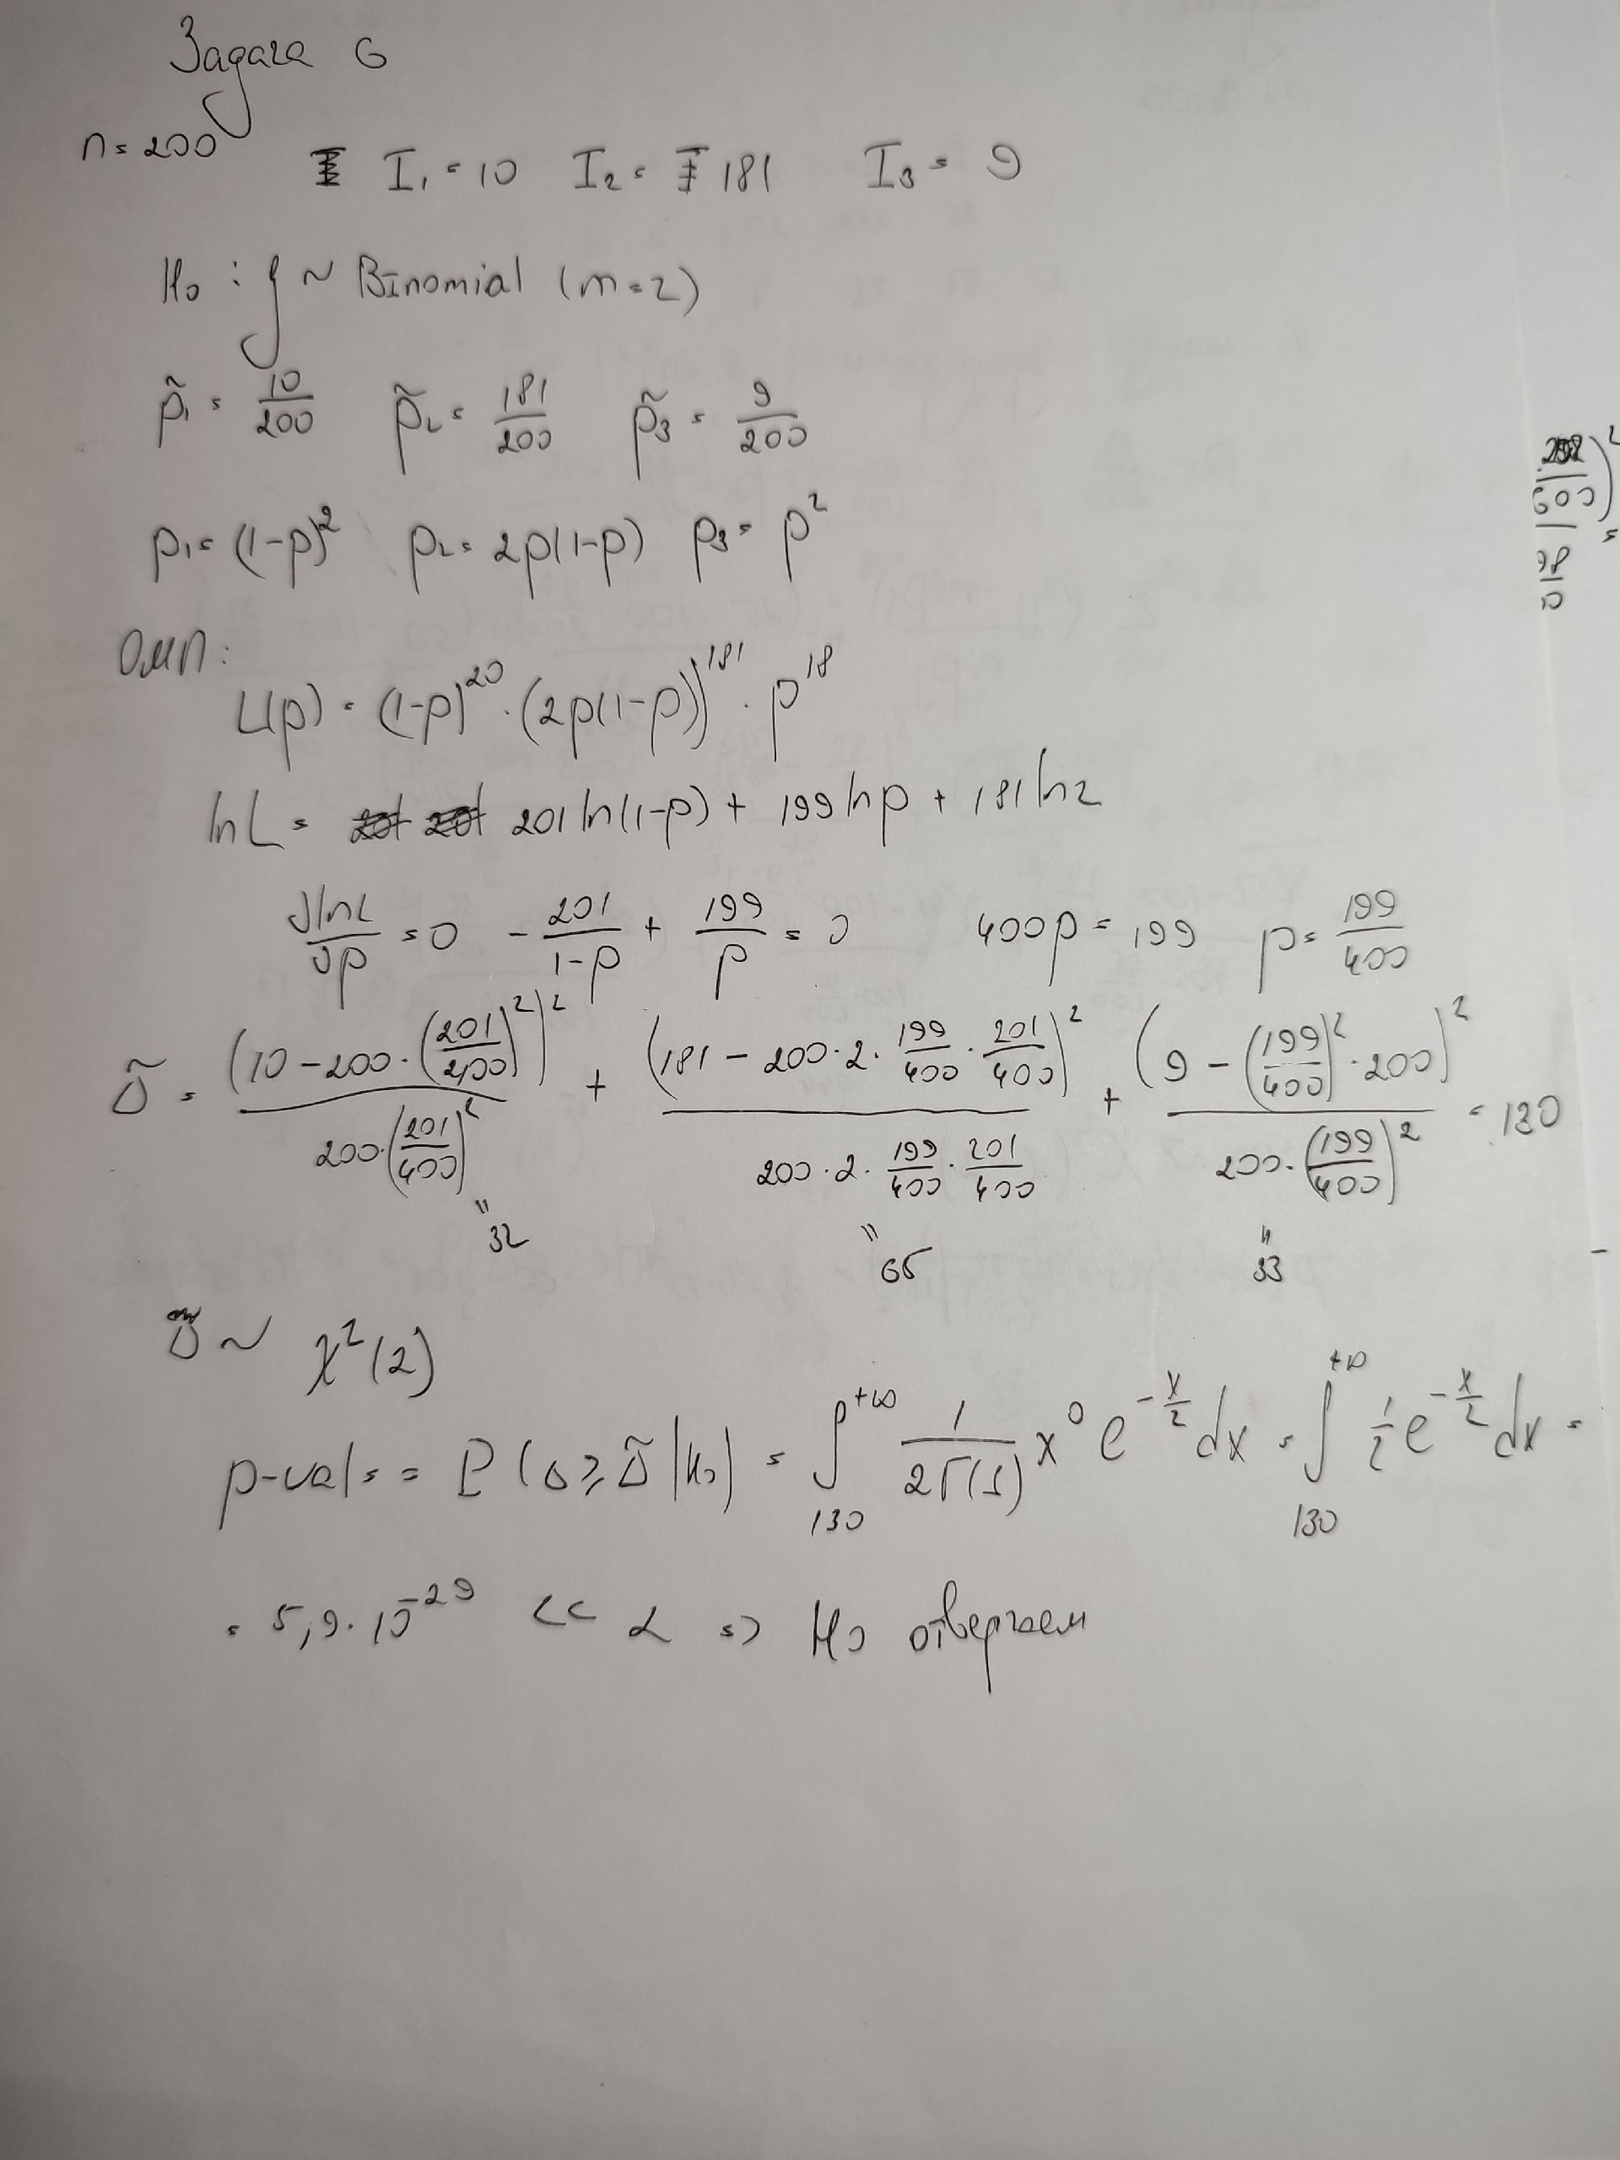 Задача 6
n = 200
I₁ = 10   I₂ = 181   I₃ = 9
H₀ : ξ ~ Binomial (m = 2)
p̃₁ = 10/200   p̃₂ = 181/200   p̃₃ = 9/200
p₁ = (1-p)²   p₂ = 2p(1-p)   p₃ = p²
ОМП:
L(p) = (1-p)²⁰ · (2p(1-p))¹⁸¹ · p¹⁸
ln L = 201 ln(1-p) + 199 ln p + 181 ln 2
∂lnL/∂p = 0   - 201/(1-p) + 199/p = 0   400p = 199   p = 199/400
Δ̃ = (10 - 200 · (201/400)²)² / (200 · (201/400)²) + (181 - 200 · 2 · 199/400 · 201/400)² / (200 · 2 · 199/400 · 201/400) + (9 - (199/400)² · 200)² / (200 · (199/400)²) = 130
" 32   " 65   " 33
Δ̃ ~ χ²(2)
p-val = = P(Δ ≥ Δ̃ | H₀) = ∫₁₃₀^+∞ 1/(2Γ(1)) x⁰ e^(-x/2) dx = ∫₁₃₀^+∞ 1/2 e^(-x/2) dx =
= 5,9 · 10⁻²⁹ << α => H₀ отвергаем